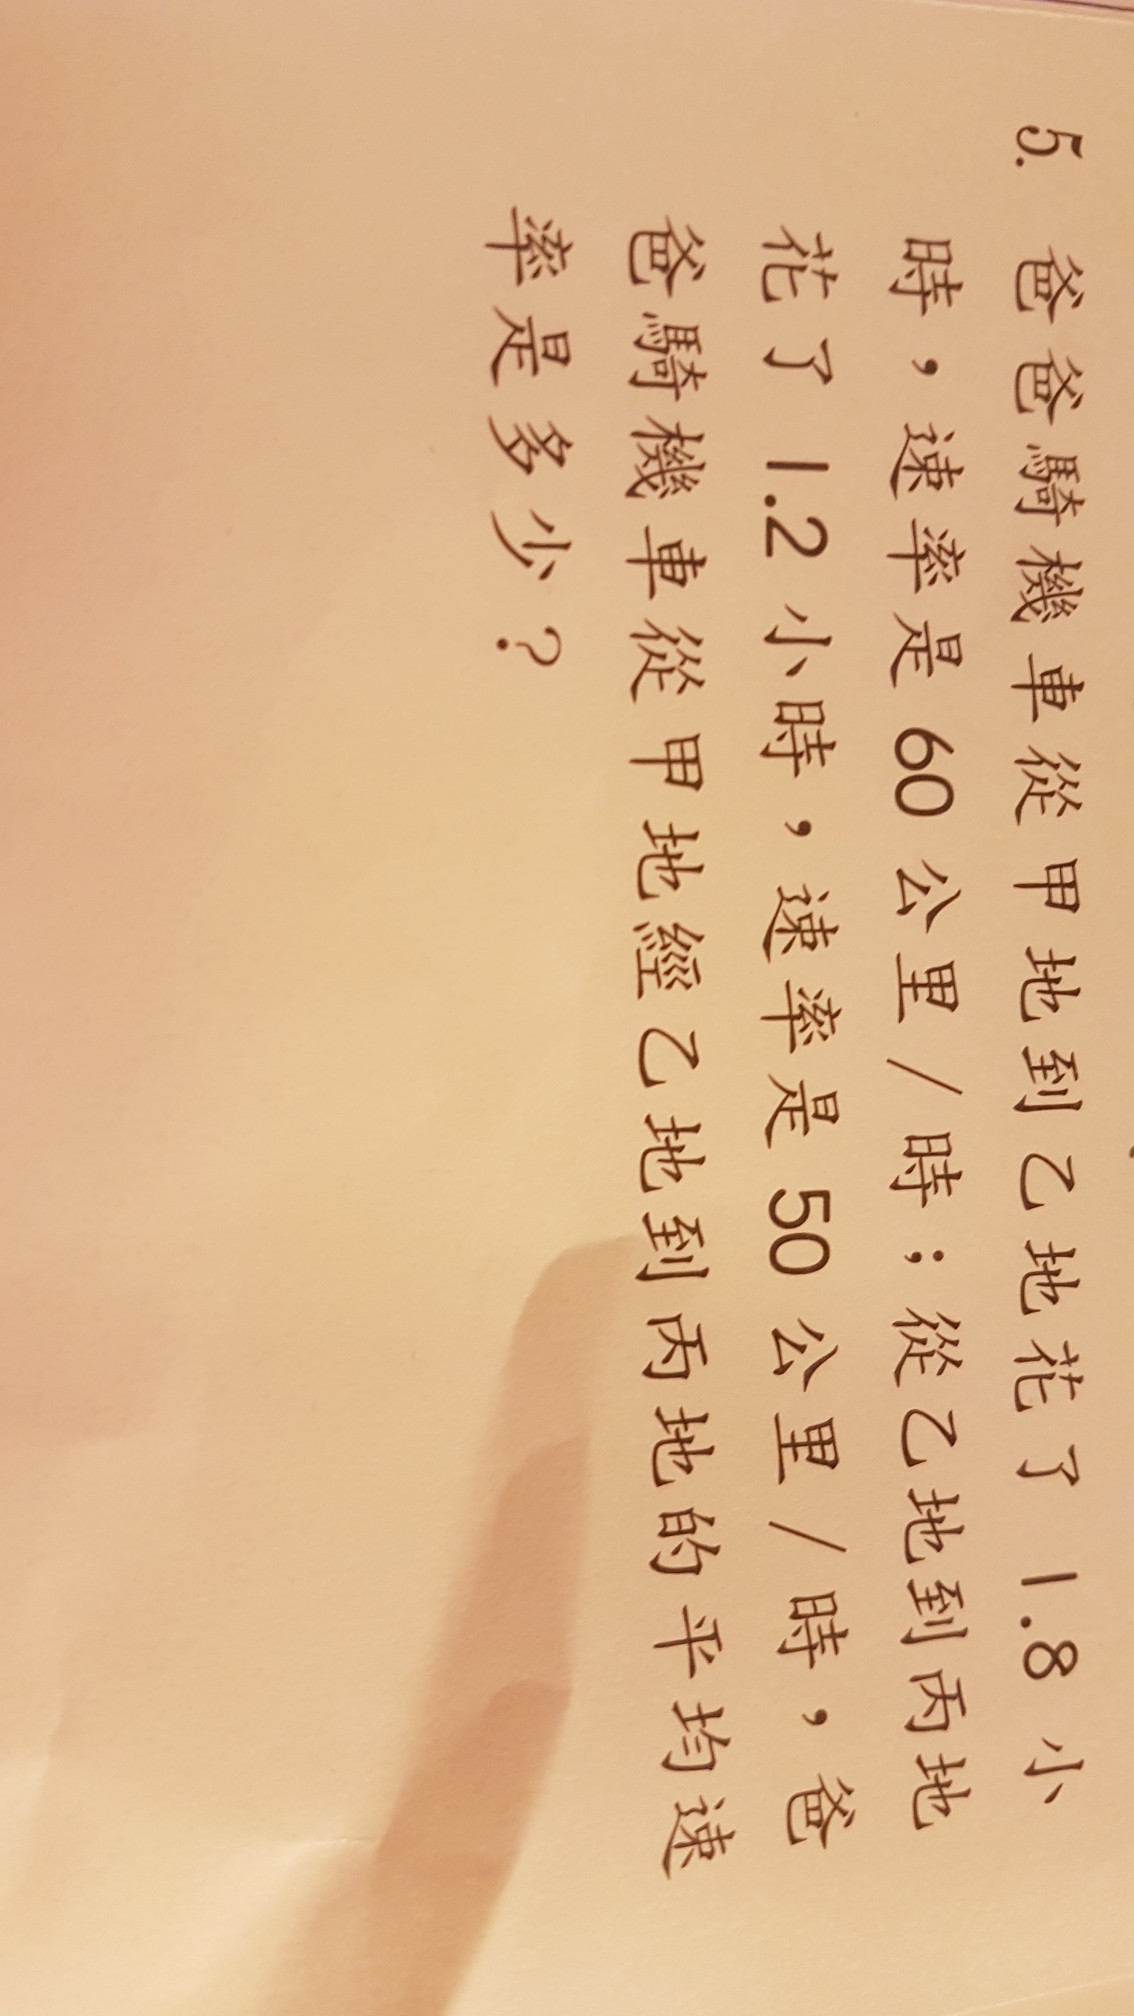 5. 爸爸騎機車從甲地到乙地花了 1.8 小
時，速率是 60 公里／時；從乙地到丙地
花了 1.2 小時，速率是 50 公里／時，爸
爸騎機車從甲地經乙地到丙地的平均速
率是多少？